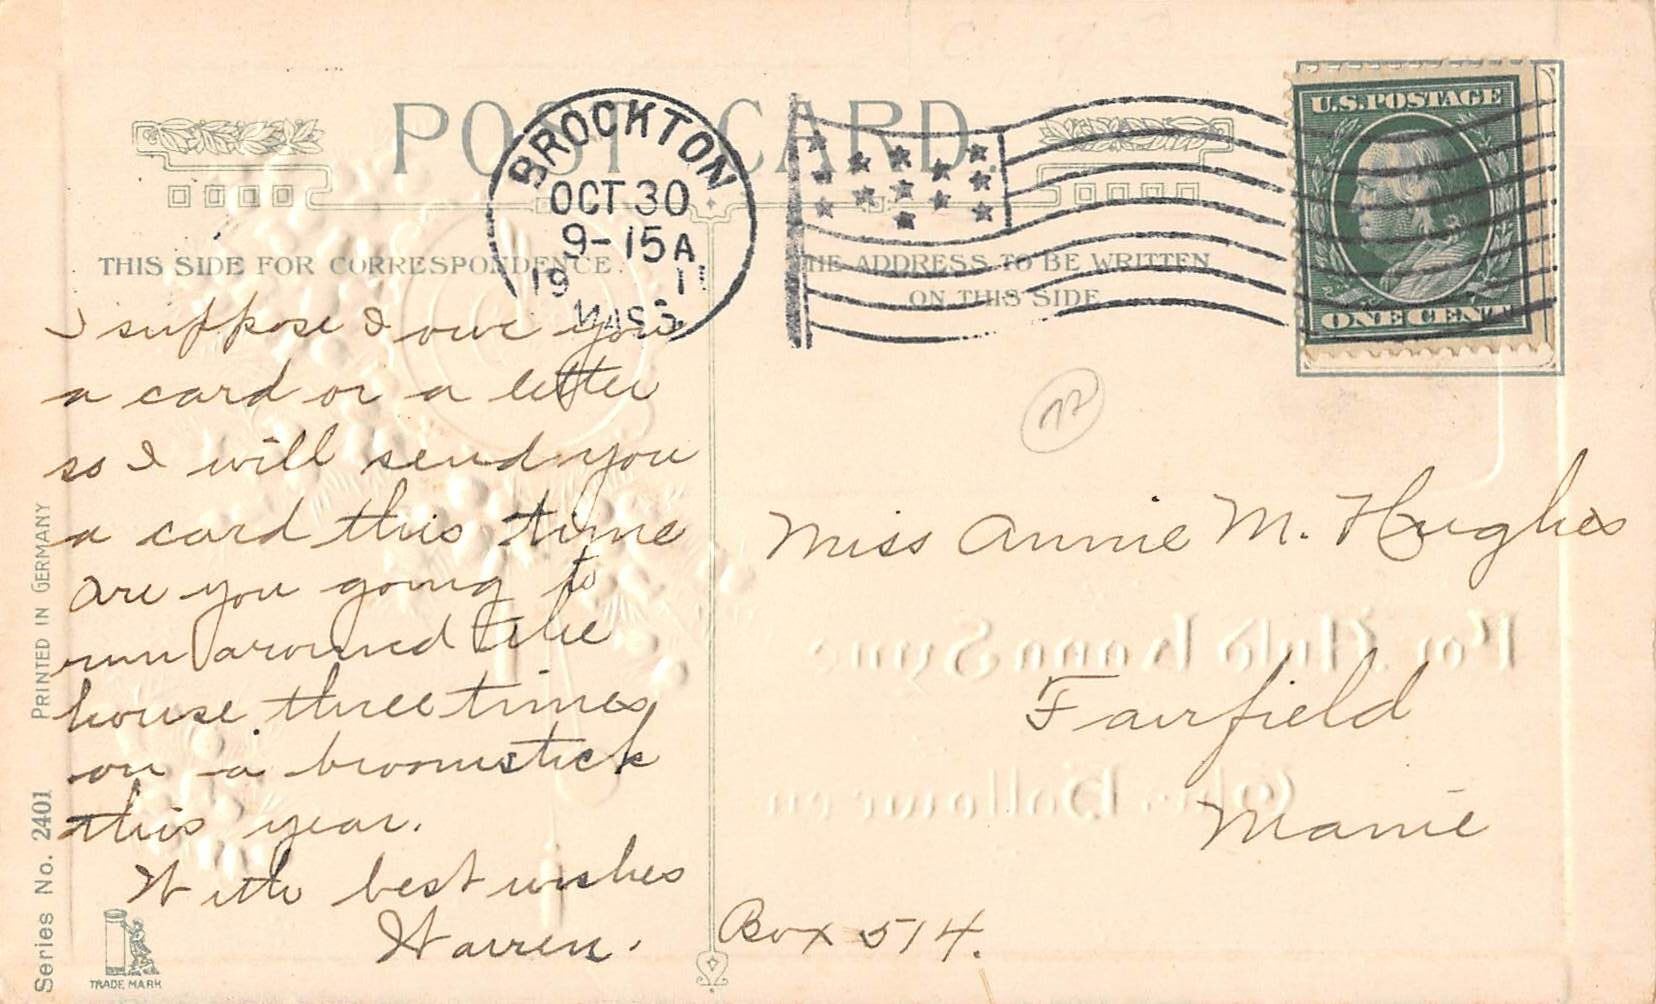 POST CARD
BROCKTON
OCT 30
9-15A
19 11
MASS
U.S. POSTAGE
ONE CENT
THIS SIDE FOR CORRESPONDENCE.
THE ADDRESS TO BE WRITTEN
ON THIS SIDE
I suppose I owe you
a card or a letter
so I will send you
a card this time
are you going to
run around the
house three times
on a broomstick
this year.
With best wishes
Warren.
Miss Annie M. Hughes
Fairfield
Maine
Box 514.
For Auld Lang Syne
This Hallowe'en
Series No. 2401 PRINTED IN GERMANY
TRADE MARK